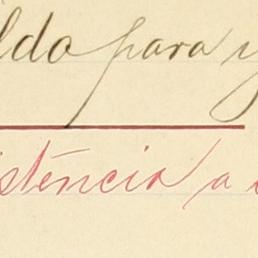 ldo para
istência a